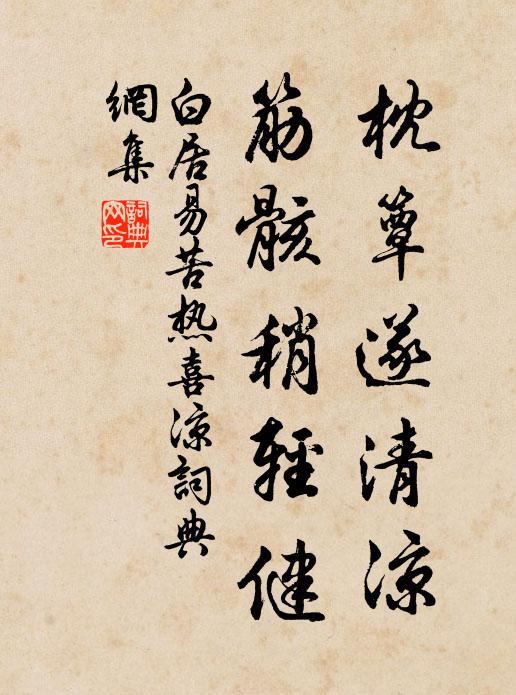 枕簟遂清涼
筋骸稍輕健
白居易苦热喜凉詞典
網集
詞典網印